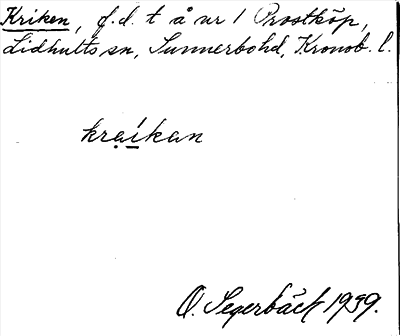 Kriken, f.d. t å nr 1 Prostköp,
Lidhults sn, Sunnerbo hd, Kronob. l.
kraikan
O. Segerbäck 1939.